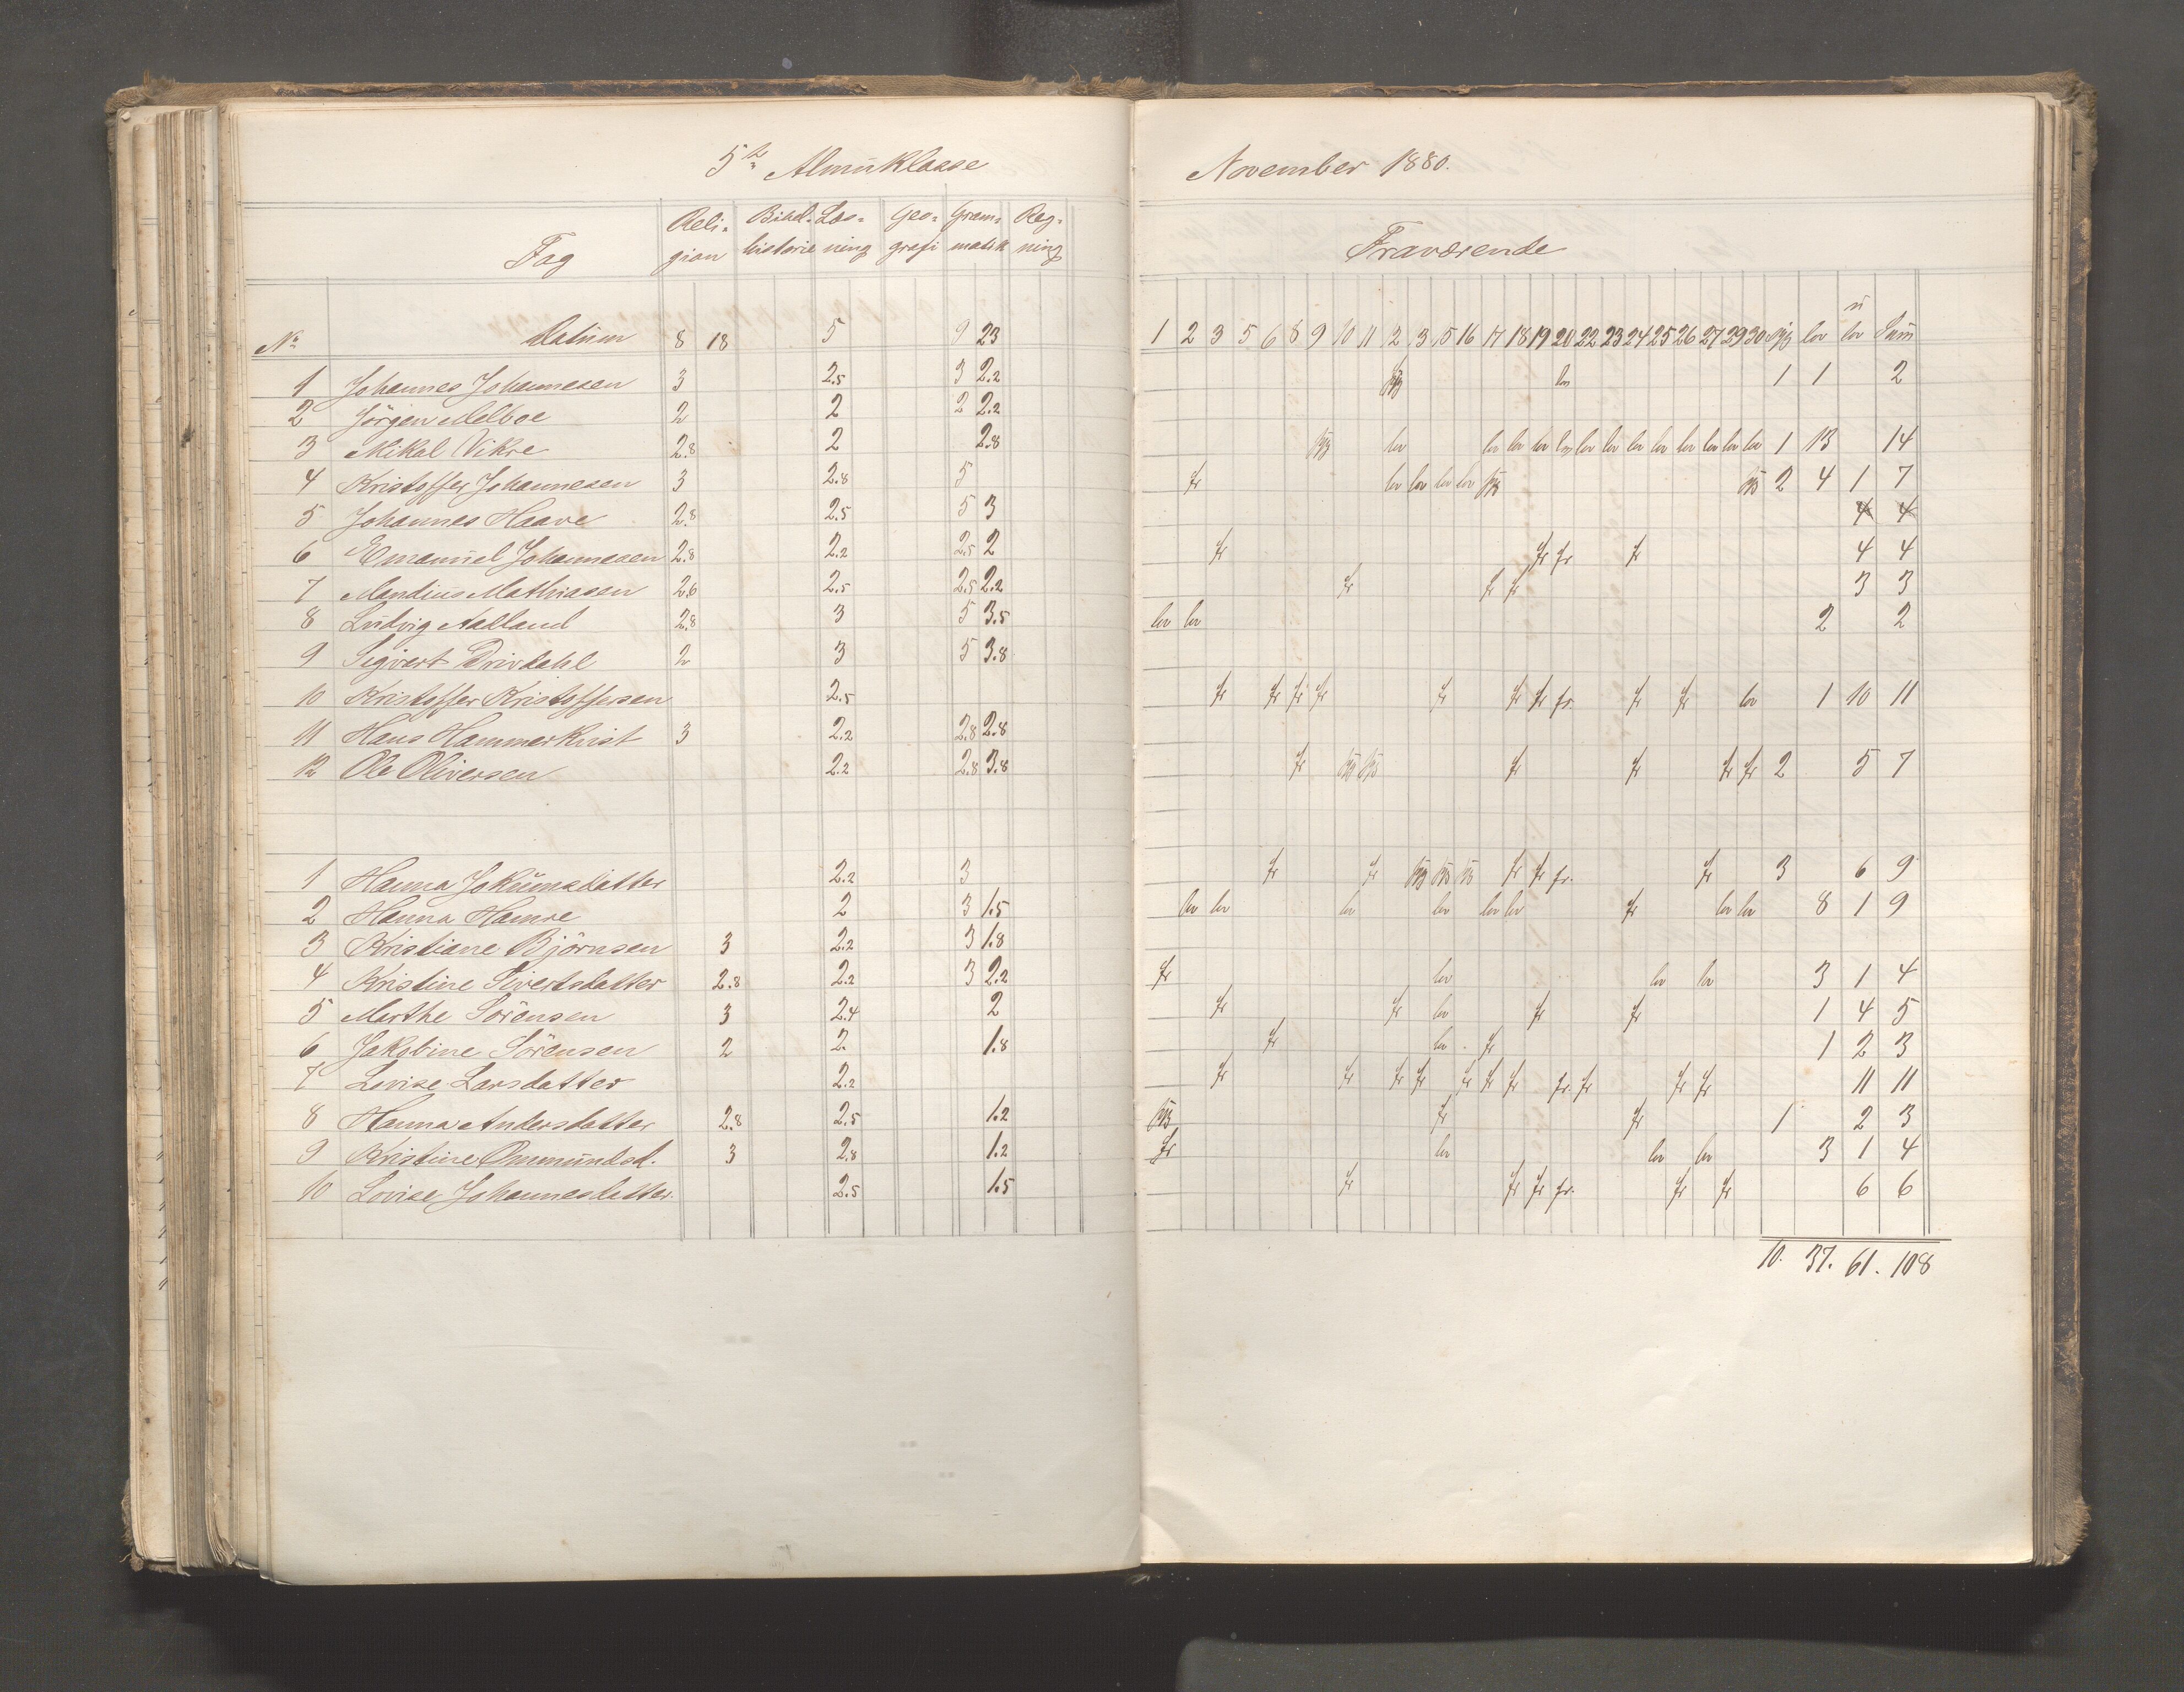 5te Almuklasse
Fag Reli= Bibel= Læs= Geo= Gram= Reg=
gion historie ning grafi matik ning
No Datum 8 18 5 9 23
1 Johannes Johannesen 3 2.5 3 2.2
2 Jörgen Melboe 2 2 2 2.2
3 Mikal Vikre 2.8 2 2.8
4 Kristoffer Johannesen 3 2.8 5
5 Johannes Haave 2.8 2.5 5 3
6 Emanuel Johannesen 2.8 2.2 2.5 2
7 Mandius Mathiasen 2.6 2.5 2.5 2.2
8 Ludvig Aalland 2.8 3 5 3.5
9 Sigvart Drivdahl 2 3 5 3.8
10 Kristoffer Kristoffersen 2.5
11 Hans Hammerkvist 3 2.2 2.8 2.8
12 Ole Oliversen 2.2 2.8 3.8
1 Hanna Jokumsdatter 2.2 3
2 Hanna Hamre 2 3 1.5
3 Kristiane Björnsen 3 2.2 3 1.8
4 Kristine Sivertsdatter 2.8 2.2 3 2.2
5 Marthe Sörensen 3 2.4 2
6 Jakobine Sörensen 2 2. 1.8
7 Lovise Larsdatter 2.2
8 Hanna Andersdatter 2.8 2.5 1.2
9 Kristine Ommundsd. 3 2.8 1.2
10 Lovise Johannesdatter. 2.5 1.5
November 1880.
Fraværende
1 2 3 5 6 8 9 10 11 2 3 15 16 17 18 19 20 22 23 24 25 26 27 29 30 syg lov u lov Sum
syg lov 1 1 2
syg lov lov lov lov lov lov lov lov lov lov lov lov lov 1 13 14
fr lov lov lov lov syg syg 2 4 1 7
4 4
fr fr fr fr 4 4
fr fr fr 3 3
lov lov 2 2
fr fr fr fr fr fr fr fr. fr fr lov 1 10 11
fr syg syg fr fr fr fr 2 5 7
fr fr syg syg syg fr fr fr. fr 3 6 9
lov lov lov lov lov lov fr lov lov 8 1 9
fr lov lov lov 3 1 4
fr fr lov fr fr 1 4 5
fr lov. fr 1 2 3
fr fr fr fr fr fr fr fr. fr fr fr 11 11
syg fr fr 1 2 3
fr lov lov lov 3 1 4
fr fr fr fr. fr fr 6 6
10. 37. 61. 108